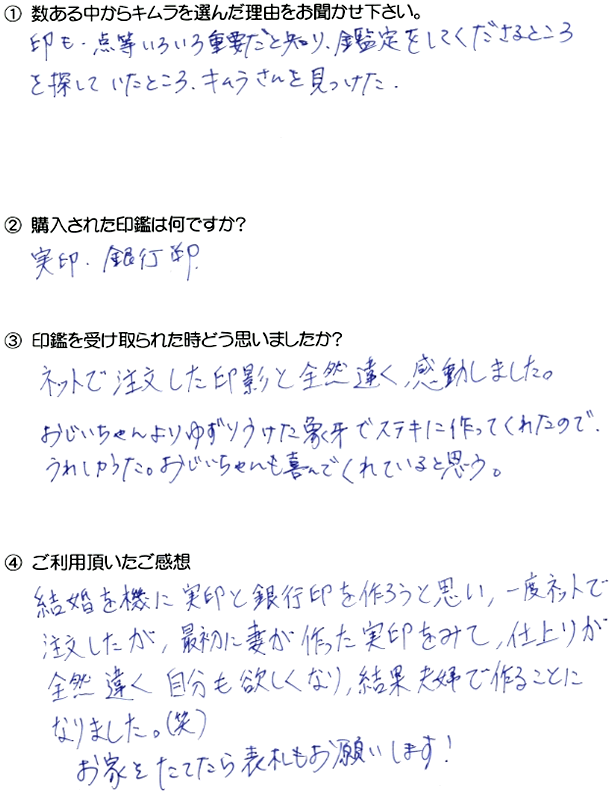 ① 数ある中からキムラを選んだ理由をお聞かせ下さい。
印も・点等いろいろ重要だと知り、鑑定をしてくださるところ
を探していたところ、キムラさんを見つけた.
② 購入された印鑑は何ですか?
実印・銀行印
③ 印鑑を受け取られた時どう思いましたか?
ネットで注文した印影と全然違く、感動しました。
おじいちゃんよりゆずりうけた象牙でステキに作ってくれたので、
うれしかった。おじいちゃんも喜んでくれていると思う。
④ ご利用頂いたご感想
結婚を機に実印と銀行印を作ろうと思い、一度ネットで
注文したが、最初に妻が作った実印をみて、仕上りが
全然違く自分も欲しくなり、結果夫婦で作ることに
なりました。(笑)
お家をたてたら表札もお願いします!